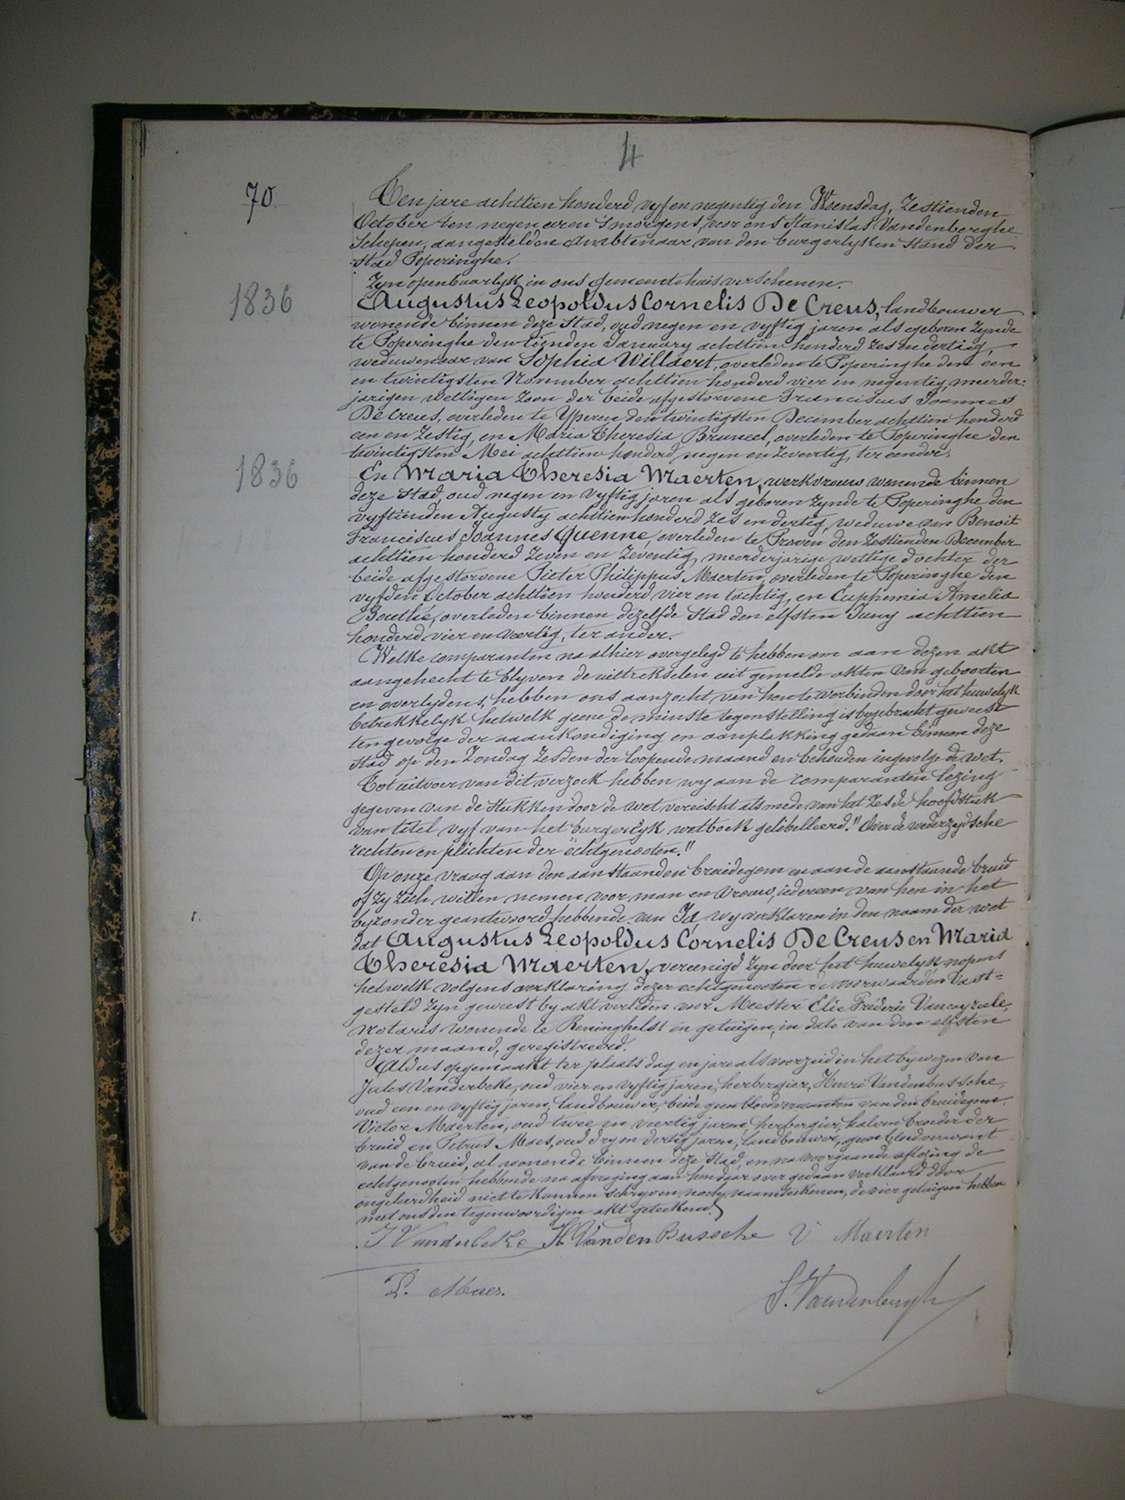 4
70
Ten jare achttien honderd vyf en negentig den Woensdag, zestienden
October ten negen uren 's morgens, voor ons Stanislas Vandenberghe
Schepen, aangestelden Ambtenaar van den burgerlyken Stand der
Stad Poperinghe.
Zyn openbaarlyk in ons gemeentehuis verschenen.
1836
Augustus Leopoldus Cornelis De Creus, landbouwer
wonende binnen deze Stad, oud negen en vyftig jaren als geboren zynde
te Poperinghe den January achttien honderd zes en dertig,
weduwenaar van Sophia Willaert, overleden te Poperinghe den een
en twintigsten November achttien honderd vier en negentig, meerder-
jarigen wettigen zoon der beide afgestorvene Franciscus Joannes
De Creus, overleden te Yperen den twintigsten December achttien honderd
een en zestig, en Maria Theresia Bruneel, overleden te Poperinghe den
twintigsten Mei achttien honderd negen en zeventig, ter eender.
1836
En Maria Theresia Maerten, werkvrouw wonende binnen
deze Stad, oud negen en vyftig jaren als geboren zynde te Poperinghe den
vyftienden Augusty achttien honderd zes en dertig, weduwe van Benoit
Franciscus Joannes Quenne, overleden te Proven den zestienden December
achttien honderd zeven en zeventig, meerderjarige wettige dochter der
beide afgestorvene Pieter Philippus Maerten, overleden te Poperinghe den
vyfden October achttien honderd vier en tachtig, en Euphemia Amelia
overleden binnen dezelfde Stad den elfsten Juny achttien
honderd vier en veertig, ter ander.
Welke comparanten na alhier overgelegd te hebben om aan dezen akt
aangehecht te blyven de uittrekselen uit gemelde akten van geboorten
en overlydens, hebben ons aanzocht van hen te verbinden door het huwelyk
betrekkelyk hetwelk geene de minste tegenstelling is bygebracht geweest
ten gevolge der aankondiging en aanplakking gedaan binnen deze
Stad op den Zondag zesden der loopende maand en behouden ingevolge de wet.
Tot uitvoer van dit verzoek hebben wy aan de comparanten lezing
gegeven van de stukken door de wet vereischt als mede van het zesde hoofdstuk
van titel vyf van het burgerlyk wetboek getitulleerd: "Over de wederzydsche
rechten en plichten der echtgenooten."
Op onze vraag aan den aanstaanden bruidegom en aan de aanstaande bruid
of zy zich willen nemen voor man en vrouw, iedereen van hen in het
byzonder geantwoord hebbende van Ja wy verklaren in den naam der wet
dat Augustus Leopoldus Cornelis De Creus en Maria
Theresia Maerten, vereenigd zyn door het huwelyk nopens
hetwelk volgens verklaring dezer echtgenooten de voorwaarden vast=
gesteld zyn geweest by akt verleden voor Meester Elie Frederic
notaris wonende te Reninghelst en getuigen, in date van den elfsten
dezer maand, geregistreerd.
Aldus opgemaakt ter plaats dag en jare als voorzeid in het bywezen van
Jules Vanderbeke, oud vier en vyftig jaren, herbergier, Henri Vandenbussche,
oud een en vyftig jaren, landbouwer, beide geen bloedverwanten van den bruidegom,
Victor Maerten, oud twee en veertig jaren, herbergier, halven broeder der
bruid en Petrus Maes, oud dry en dertig jaren, landbouwer, geen bloedverwant
van de bruid, al wonende binnen deze Stad, en na voorgaande aflezing de
echtgenooten hebbende na afvraging aan hun daar over gedaan verklaard door
ongeleerdheid niet te kunnen schryven noch naamteekenen, de vier getuigen hebben
met ons den tegenwoordigen akt geteekend.
J Vanderbeke H. VandenBussche V Maerten
P. Maes.
S. Vandenberghe